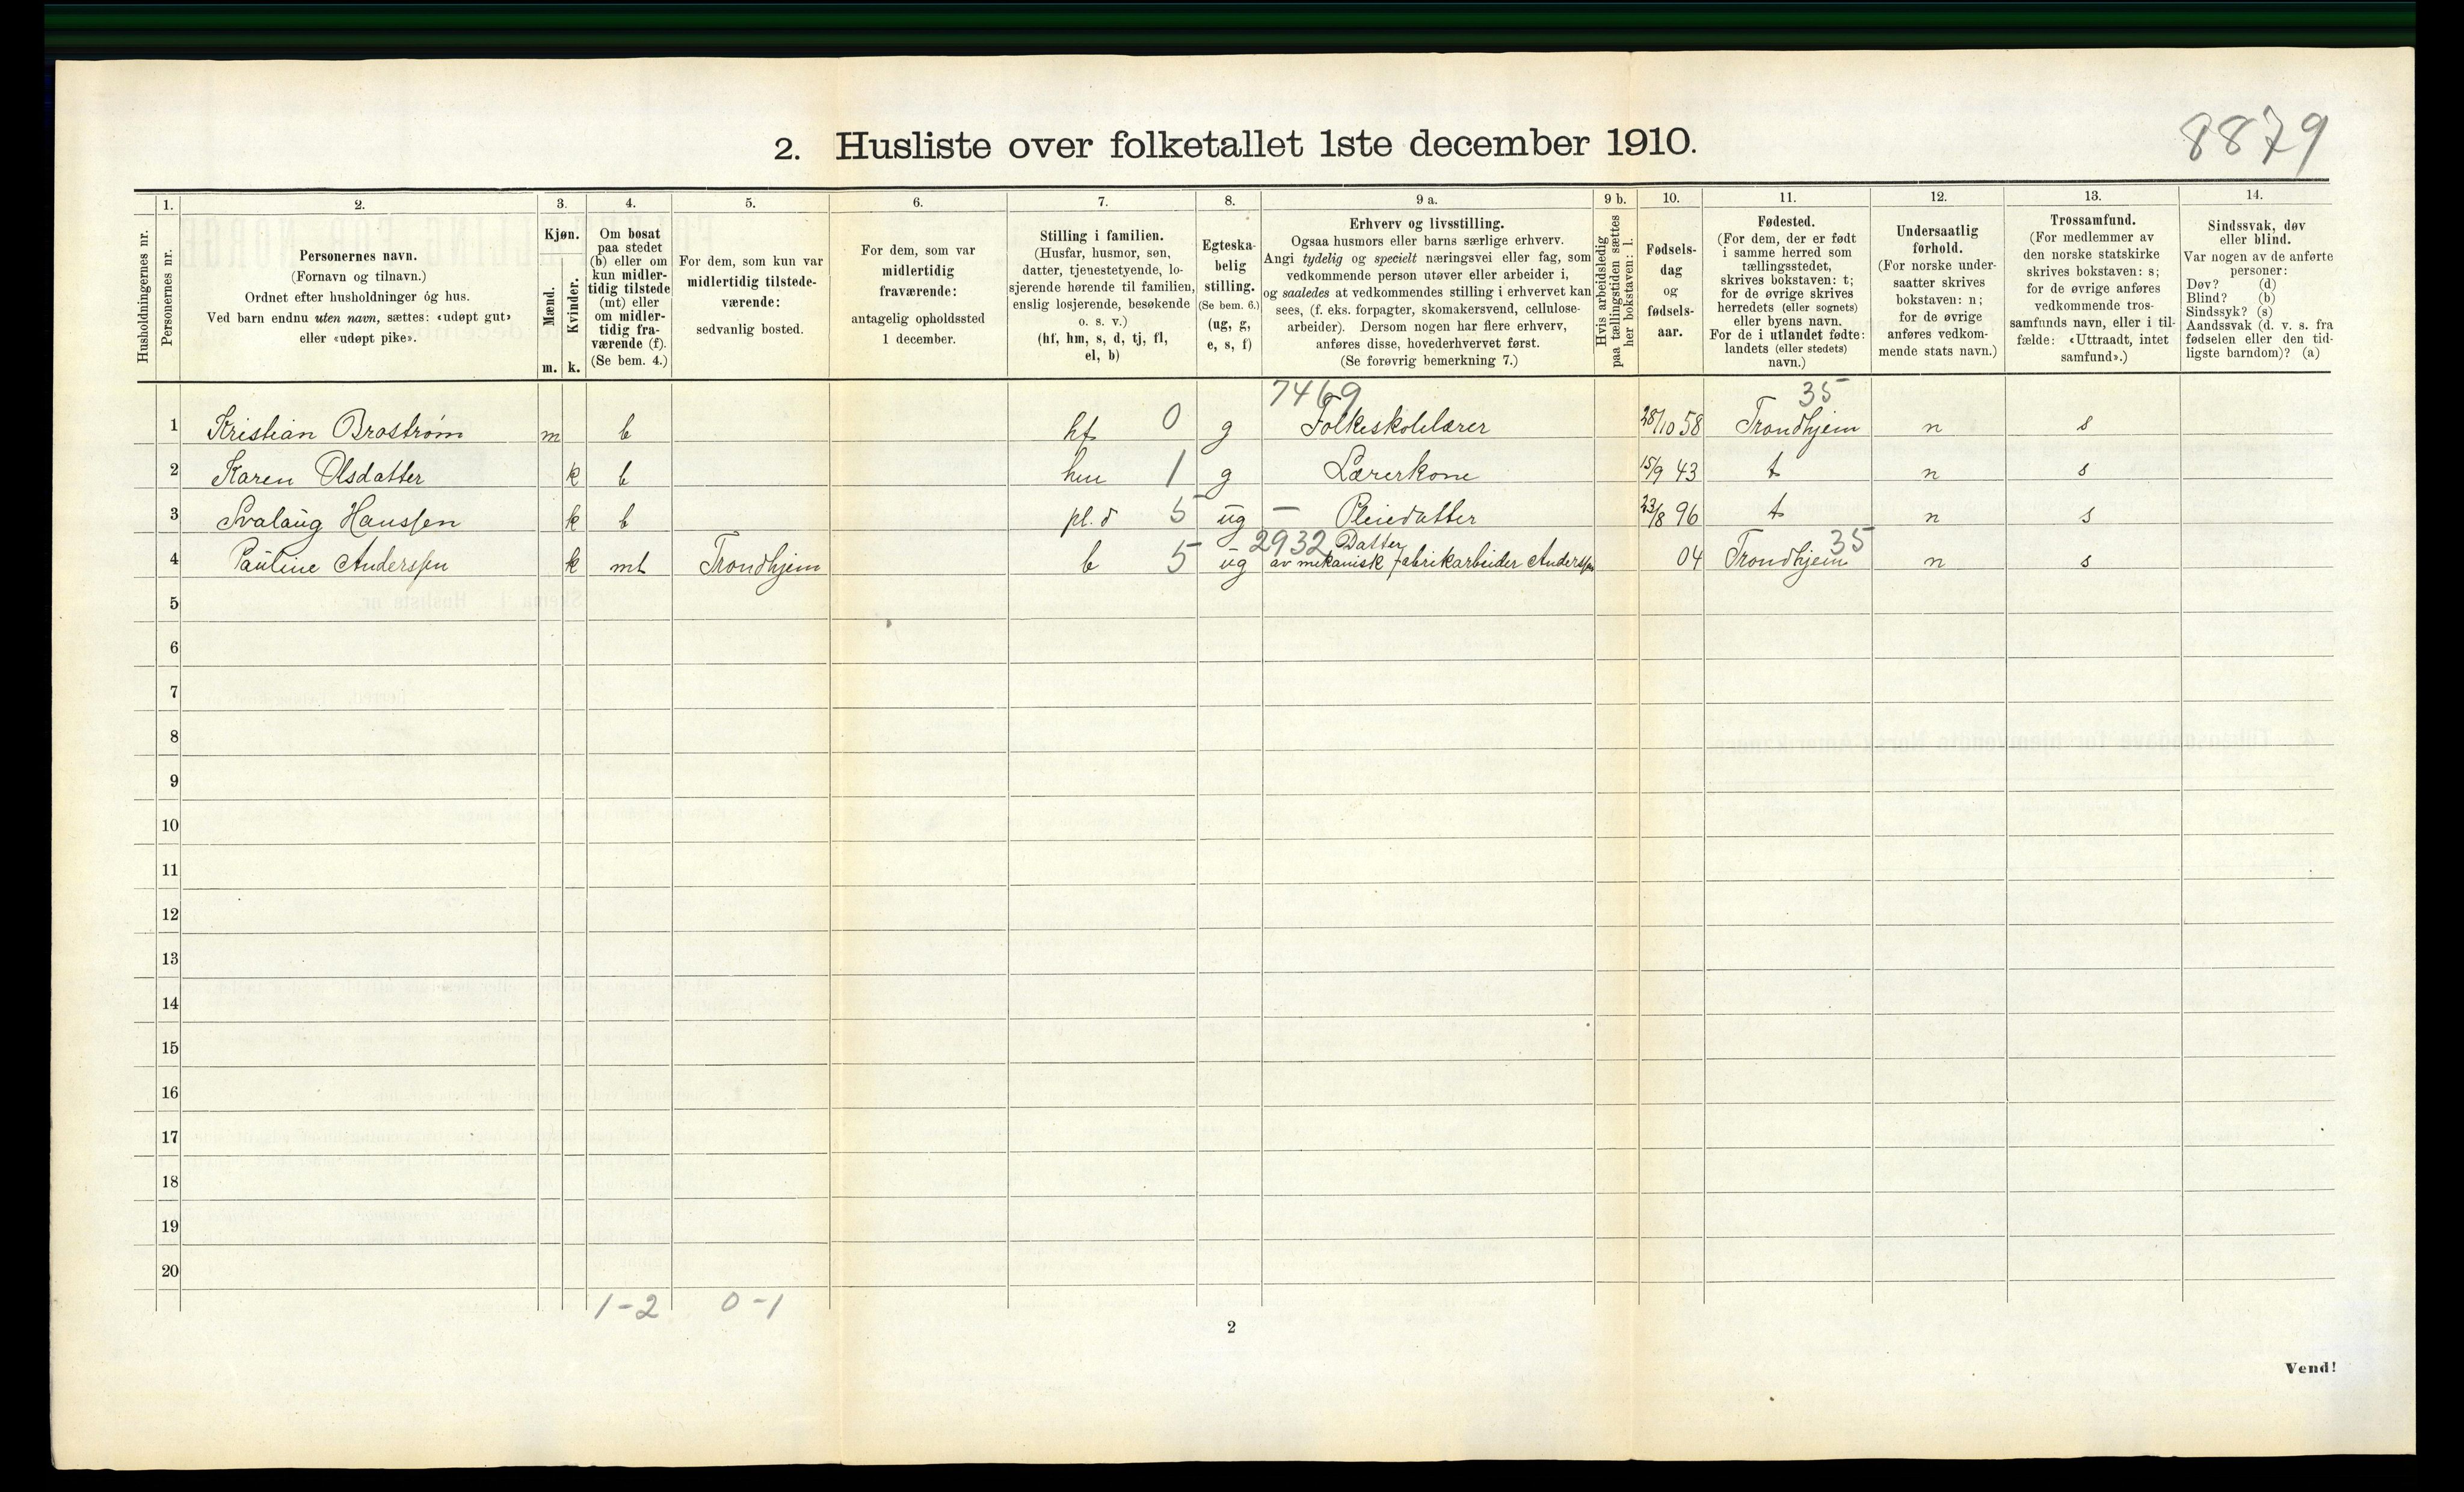 8879
2. Husliste over folketallet 1ste december 1910.
Husholdningernes nr.
1.
Personernes nr.
2.
Personernes navn.
(Fornavn og tilnavn.)
Ordnet efter husholdninger óg hus.
Ved barn endnu uten navn, sættes: «udøpt gut»
eller «udøpt pike».
3.
Kjøn.
Mænd.
Kvinder.
m. k.
4.
Om bosat
paa stedet
(b) eller om
kun midler-
tidig tilstede
(mt) eller
om midler-
tidig fra-
værende (f).
(Se bem. 4.)
5.
For dem, som kun var
midlertidig tilstede-
værende:
sedvanlig bosted.
6.
For dem, som var
midlertidig
fraværende:
antagelig opholdssted
1 december.
7.
Stilling i familien.
(Husfar, husmor, søn,
datter, tjenestetyende, lo-
sjerende hørende til familien,
enslig losjerende, besøkende
o. s. v.)
(hf, hm, s, d, tj, fl,
el, b)
8.
Egteska-
belig
stilling.
(Se bem. 6.)
(ug, g,
e, s, f)
9 a.
Erhverv og livsstilling.
Ogsaa husmors eller barns særlige erhverv.
Angi tydelig og specielt næringsvei eller fag, som
vedkommende person utøver eller arbeider i,
og saaledes at vedkommendes stilling i erhvervet kan
sees, (f. eks. forpagter, skomakersvend, cellulose-
arbeider). Dersom nogen har flere erhverv,
anføres disse, hovederhvervet først.
(Se forøvrig bemerkning 7.)
9 b.
Hvis arbeidsledig
paa tællingstiden sættes
her bokstaven: l.
10.
Fødsels-
dag
og
fødsels-
aar.
11.
Fødested.
(For dem, der er født
i samme herred som
tællingsstedet,
skrives bokstaven: t;
for de øvrige skrives
herredets (eller sognets)
eller byens navn.
For de i utlandet fødte:
landets (eller stedets)
navn.)
12.
Undersaatlig
forhold.
(For norske under-
saatter skrives
bokstaven: n;
for de øvrige
anføres vedkom-
mende stats navn.)
13.
Trossamfund.
(For medlemmer av
den norske statskirke
skrives bokstaven: s;
for de øvrige anføres
vedkommende tros-
samfunds navn, eller i til-
fælde: «Uttraadt, intet
samfund».)
14.
Sindssvak, døv
eller blind.
Var nogen av de anførte
personer:
Døv? (d)
Blind? (b)
Sindssyk? (s)
Aandssvak (d. v. s. fra
fødselen eller den tid-
ligste barndom)? (a)
7469 35
1 Kristian Brostrøm m b hf 0 g Folkeskolelærer 28/10 58 Trondhjem n s
2 Karen Olsdatter k b hm 1 g Lærerkone 15/9 43 t n s
3 Svalaug Hanssen k b pl. d 5 ug — Pleiedatter 23/8 96 t n s
2932 Datter 35
4 Pauline Anderssen k mt Trondhjem b 5 ug av mekanisk fabrikarbeider Anderssen 04 Trondhjem n s
5
6
7
8
9
10
11
12
13
14
15
16
17
18
19
20
1-2 0-1
2
Vend!